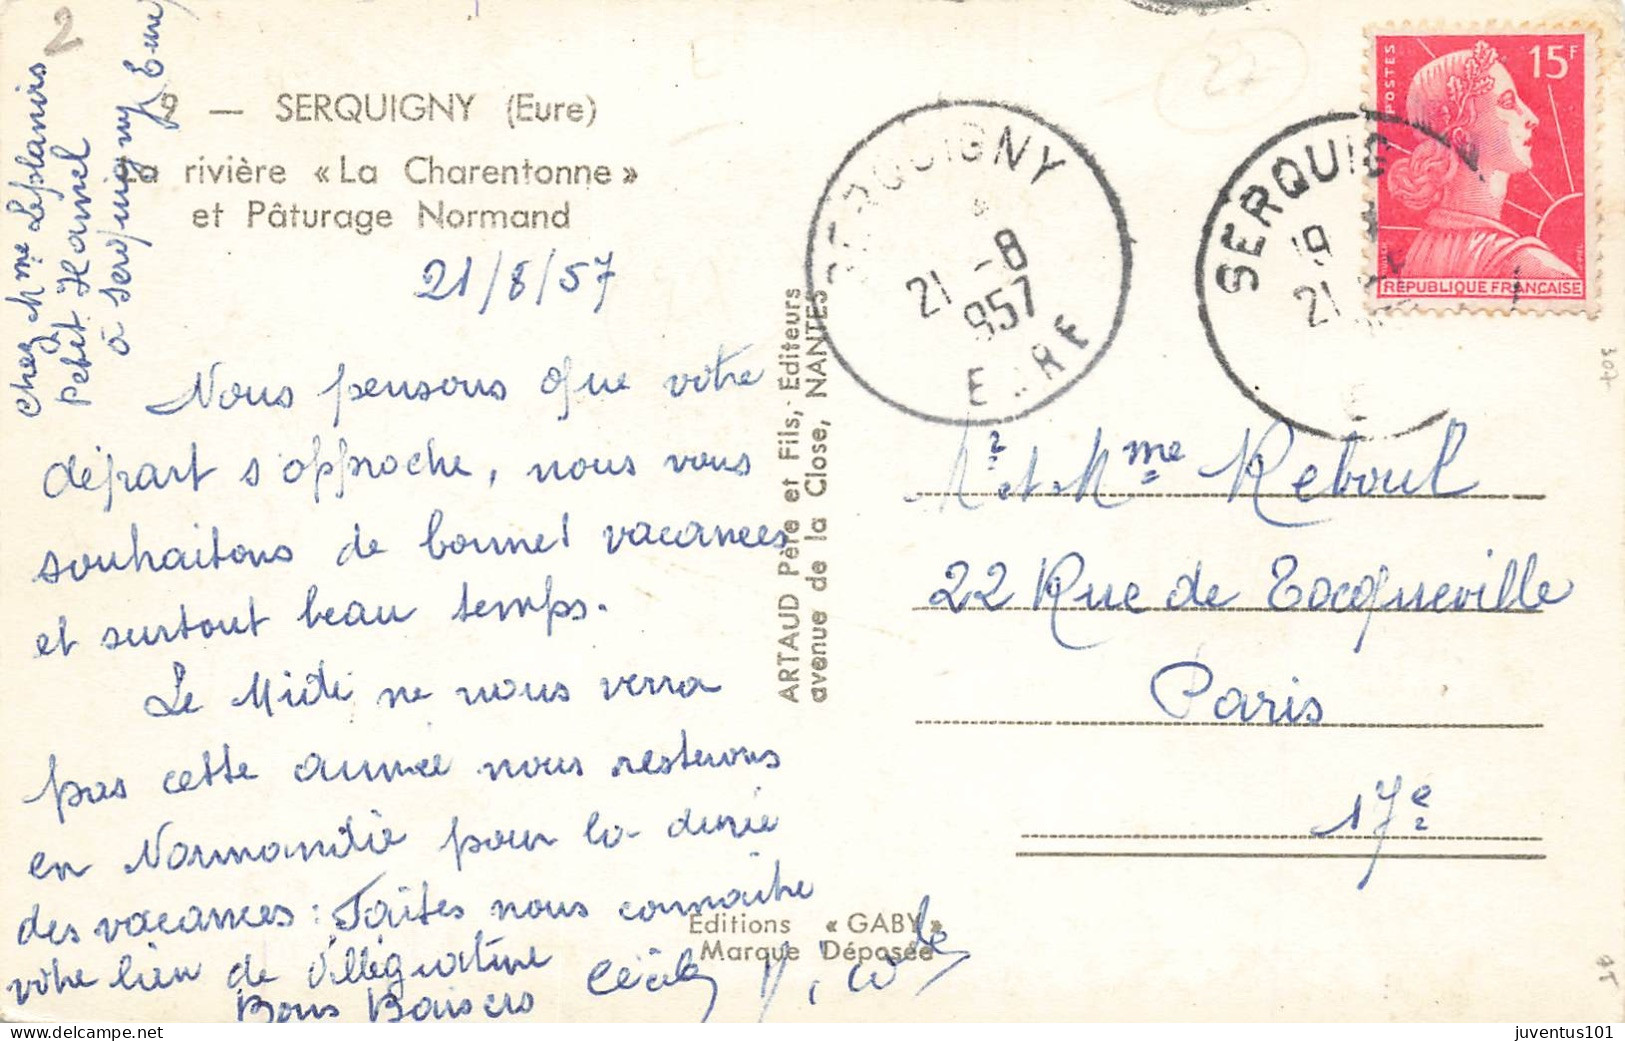 2
chez Mme Leplanois
Petit Hamel
à Serquigny Eure
2 — SERQUIGNY (Eure)
La rivière « La Charentonne »
et Pâturage Normand
21/8/57
Nous pensons que votre
départ s'approche, nous vous
souhaitons de bonnes vacances
et surtout beau temps.
Le Midi ne nous verra
pas cette année nous resterons
en Normandie pour la durée
des vacances : Faites nous connaître
votre lieu de villégiature
Bons Baisers Cécile
ARTAUD Père et Fils, Editeurs
avenue de la Close, NANTES
Editions « GABY »
Marque Déposée
SERQUIGNY
21 -8
957
EURE
SERQUIG
19
21
E
22
POSTES
15F
REPUBLIQUE FRANÇAISE
Mr et Mme Reboul
22 Rue de Tocqueville
Paris
17e
307
juventus101